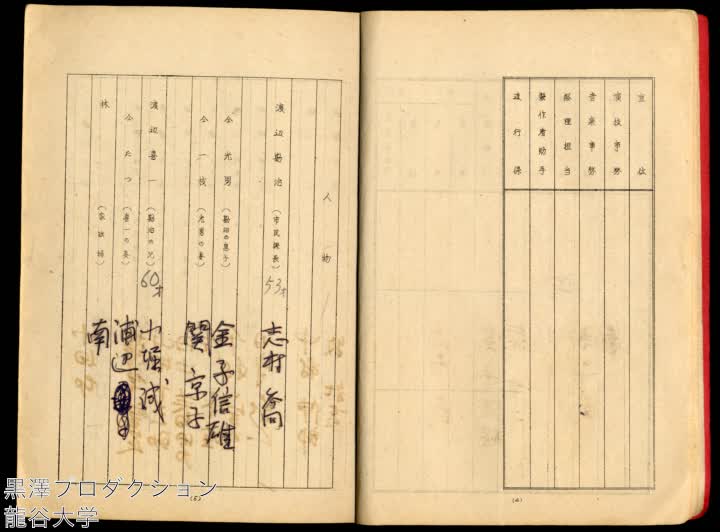 主位
演技事務
音楽事務
経理担当
製作者助手
進行係
(4)
人物
渡辺勘治 (市民課長) 53才 志村喬
仝 光男 (勘治の息子) 金子信雄
仝 一枝 (光男の妻) 関京子
渡辺喜一 (勘治の兄) 60才 小堀誠
仝 たつ (喜一の妻) 浦辺
林 (家政婦) 南
(5)
黒澤プロダクション
龍谷大学